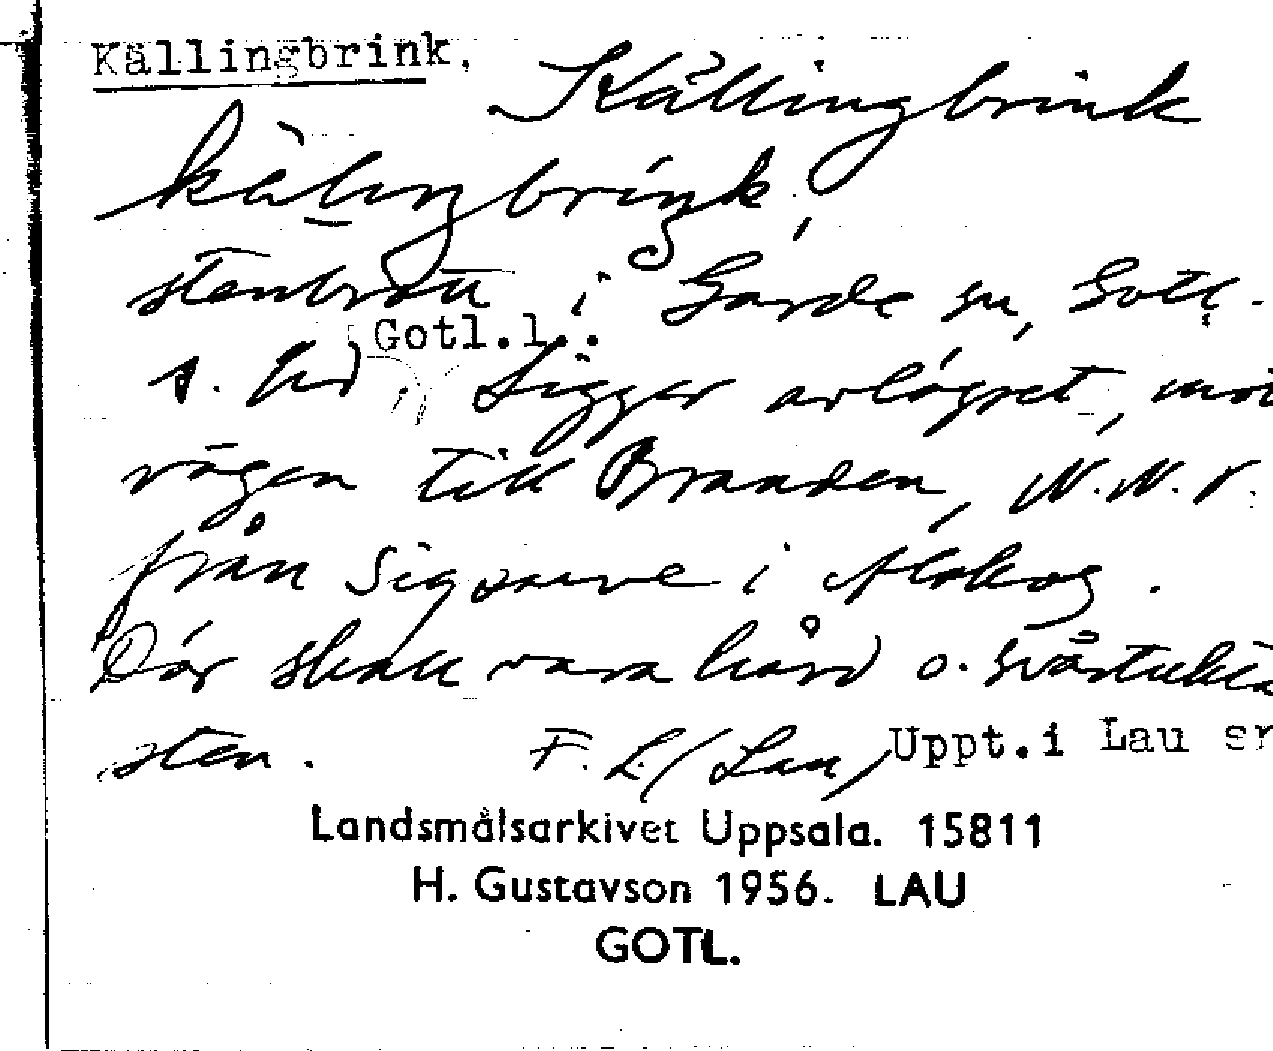 Källingbrink, Källingbrink
kälıŋbriŋk,
stenbrott i Garde sn, Gotl.
Gotl.l..
s. hd. Ligger avlägset, mot
vägen till Branden, N.N.V.
från Sigsarve i Alskog.
Där skall vara hård o. svårtuktad
sten. F. L. (Lau) Uppt.i Lau sn
Landsmålsarkivet Uppsala. 15811
H. Gustavson 1956. LAU
GOTL.